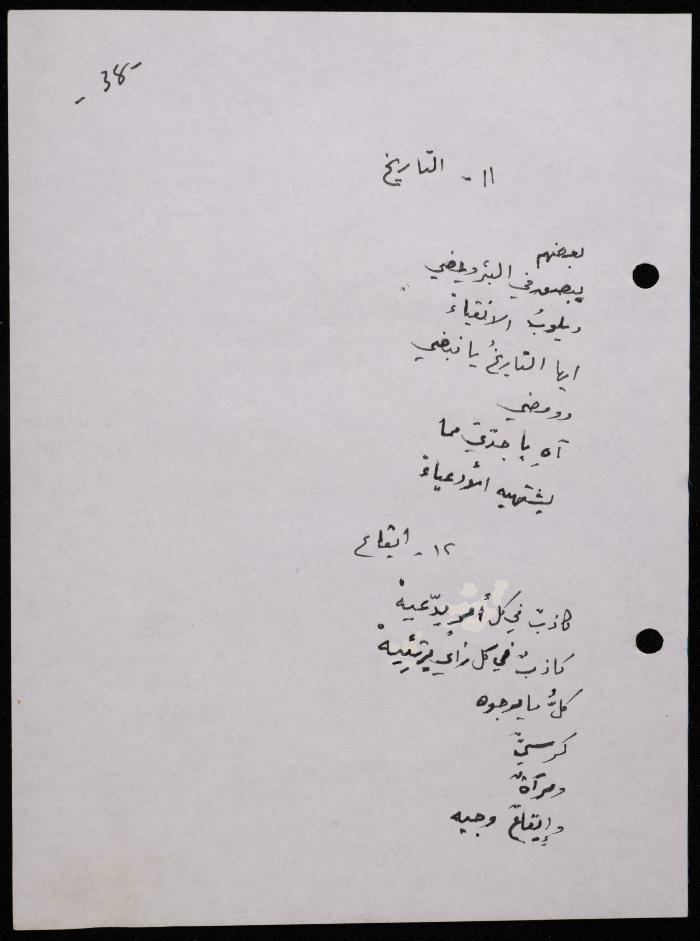 - 38 -
١١ - التّاريخ
بعضهم
يبصق في البئر ويمضي
ويلوبُ الانقياءْ
ايها التاريخُ يا نبضي
وومضي
آهِ يا جدّي مما
يشتهيه الأدعياءْ
١٢ - ايقاع
كاذبٌ في كل أمرٍ يدّعيهْ
كاذبٌ في كل رأيٍ يرتئيهْ
كلُّ ما يرجوه
كرسيٌّ
ومرآةٌ
وإيقاعٌ وجيه